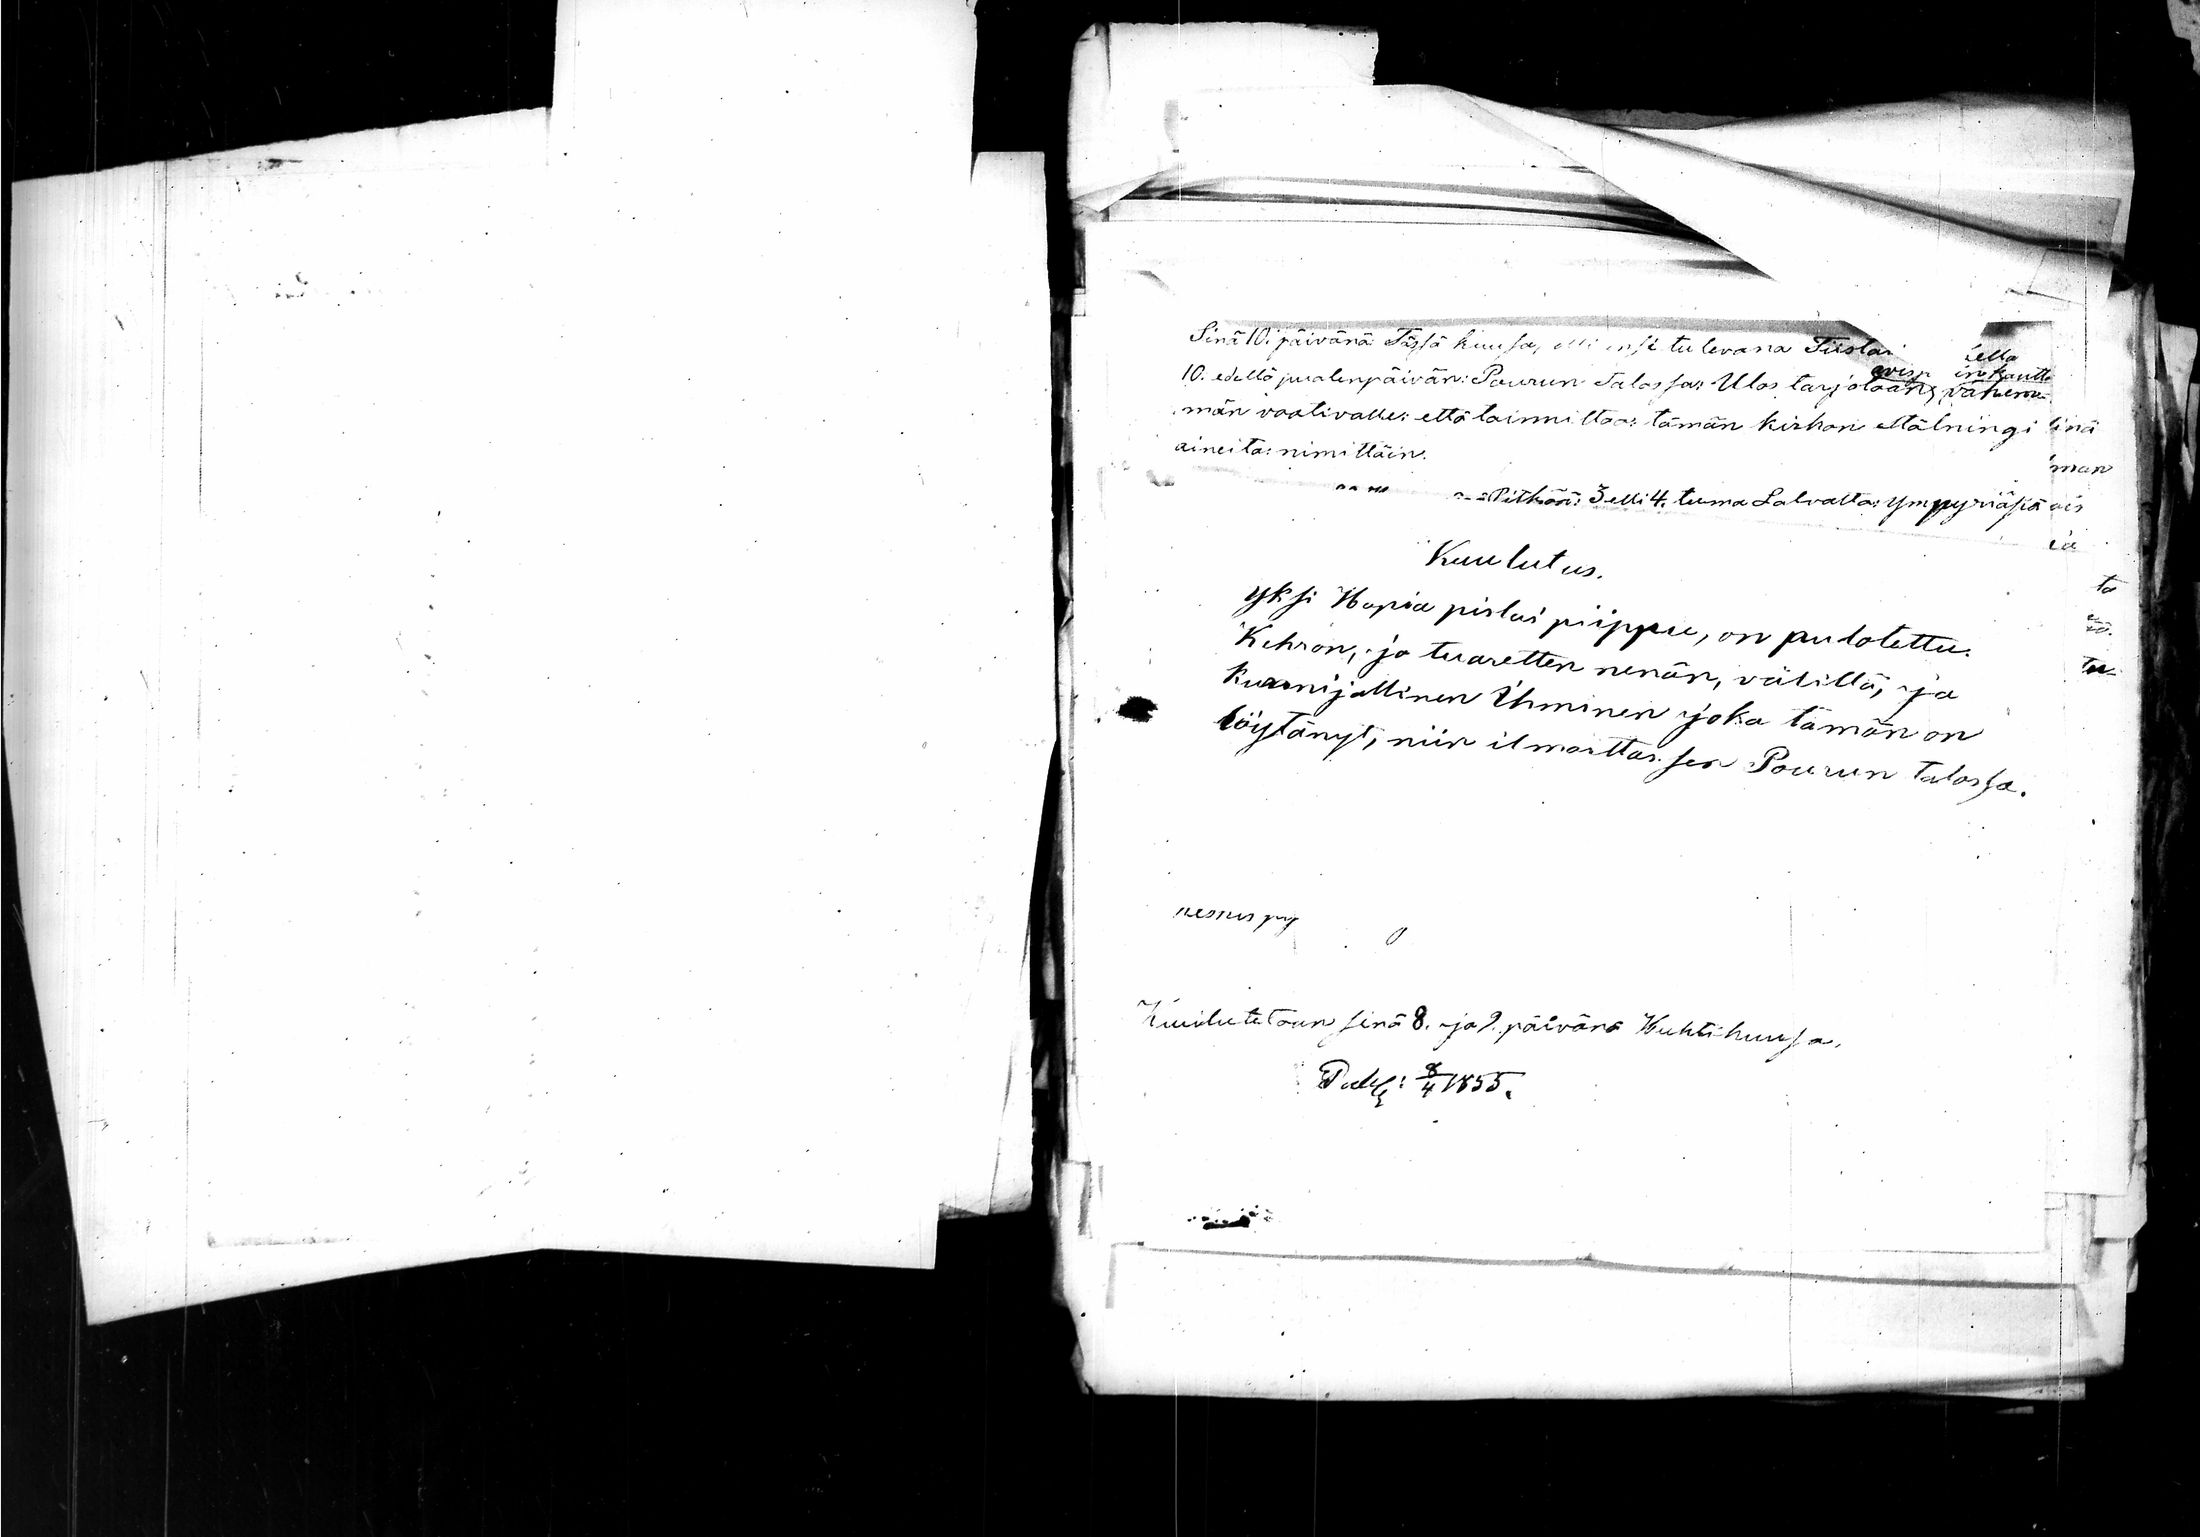 Sinä 10. päivänä Tässä kuusa, elli ensi tulevana Tiistai
10. edellä puolenpäivän: Pourun Talossa: Ulos tarjotaan, vähem-
män vaativalle: että toimittaa: tämän kirkon ställningi
aineita: nimittäin.
Pitkää: 3 elli 4. tuma Latvalta: ympyriäsiä
Kuulutus.
yksi Hopia pislai piippu, on pudotettu.
Kihron, ja tuaretten nenän, välillä, ja
kunnijallinen Ihminen joka tämän on
löytänyt, niin ilmoittas sen Pourun talossa.
Kuulutetaan sinä 8. ja 9. päivänä Huhtikuusa.
8/4 1855.